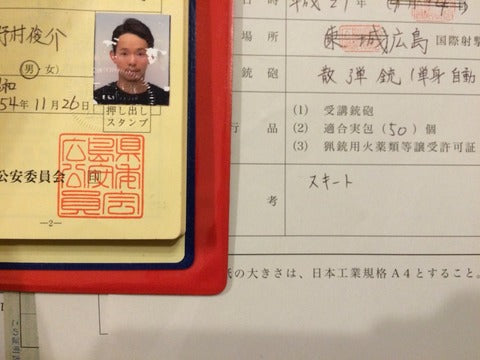 野村俊介
男 女)
54年11月26日
押し出し
スタンプ
公安委員会 印
島県公安委員会
—2—
時 平成27年
場所 広島 国際射撃
銃砲 散弾銃(単身自動
行品 (1) 受講銃砲
(2) 適合実包(50)個
(3) 猟銃用火薬類等譲受許可証
考 スキート
紙の大きさは、日本工業規格A4とすること。